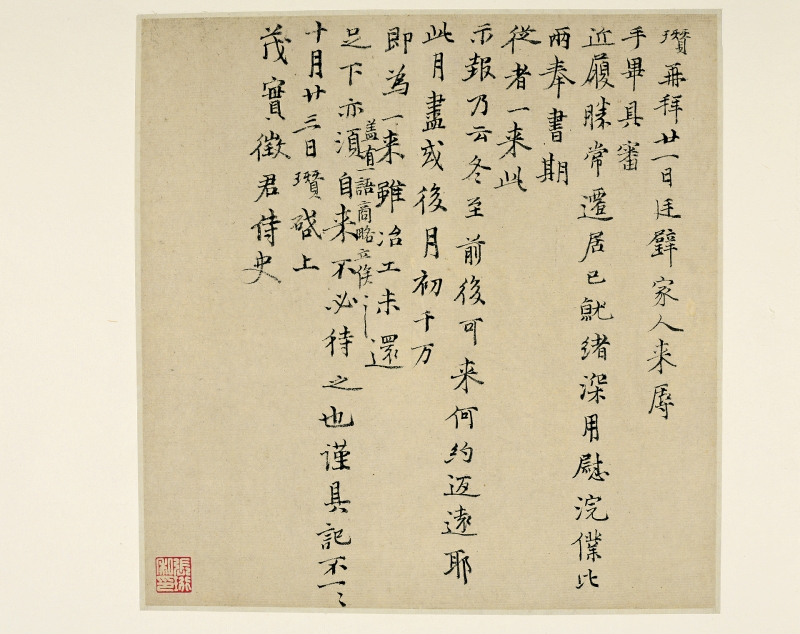 瓚再拜廿一日廷璧家人来辱
手畢具審
近履勝常遷居已就緒深用慰浣僕比
兩奉書期
從者一来此
示報乃云冬至前後可来何約迈遠耶
此月盡或後月初千万
即為一来雖冶工未還
蓋有一語商略立俟
足下亦須自来不必待之也謹具記不一
十月廿三日瓚啓上
茂實徵君侍史